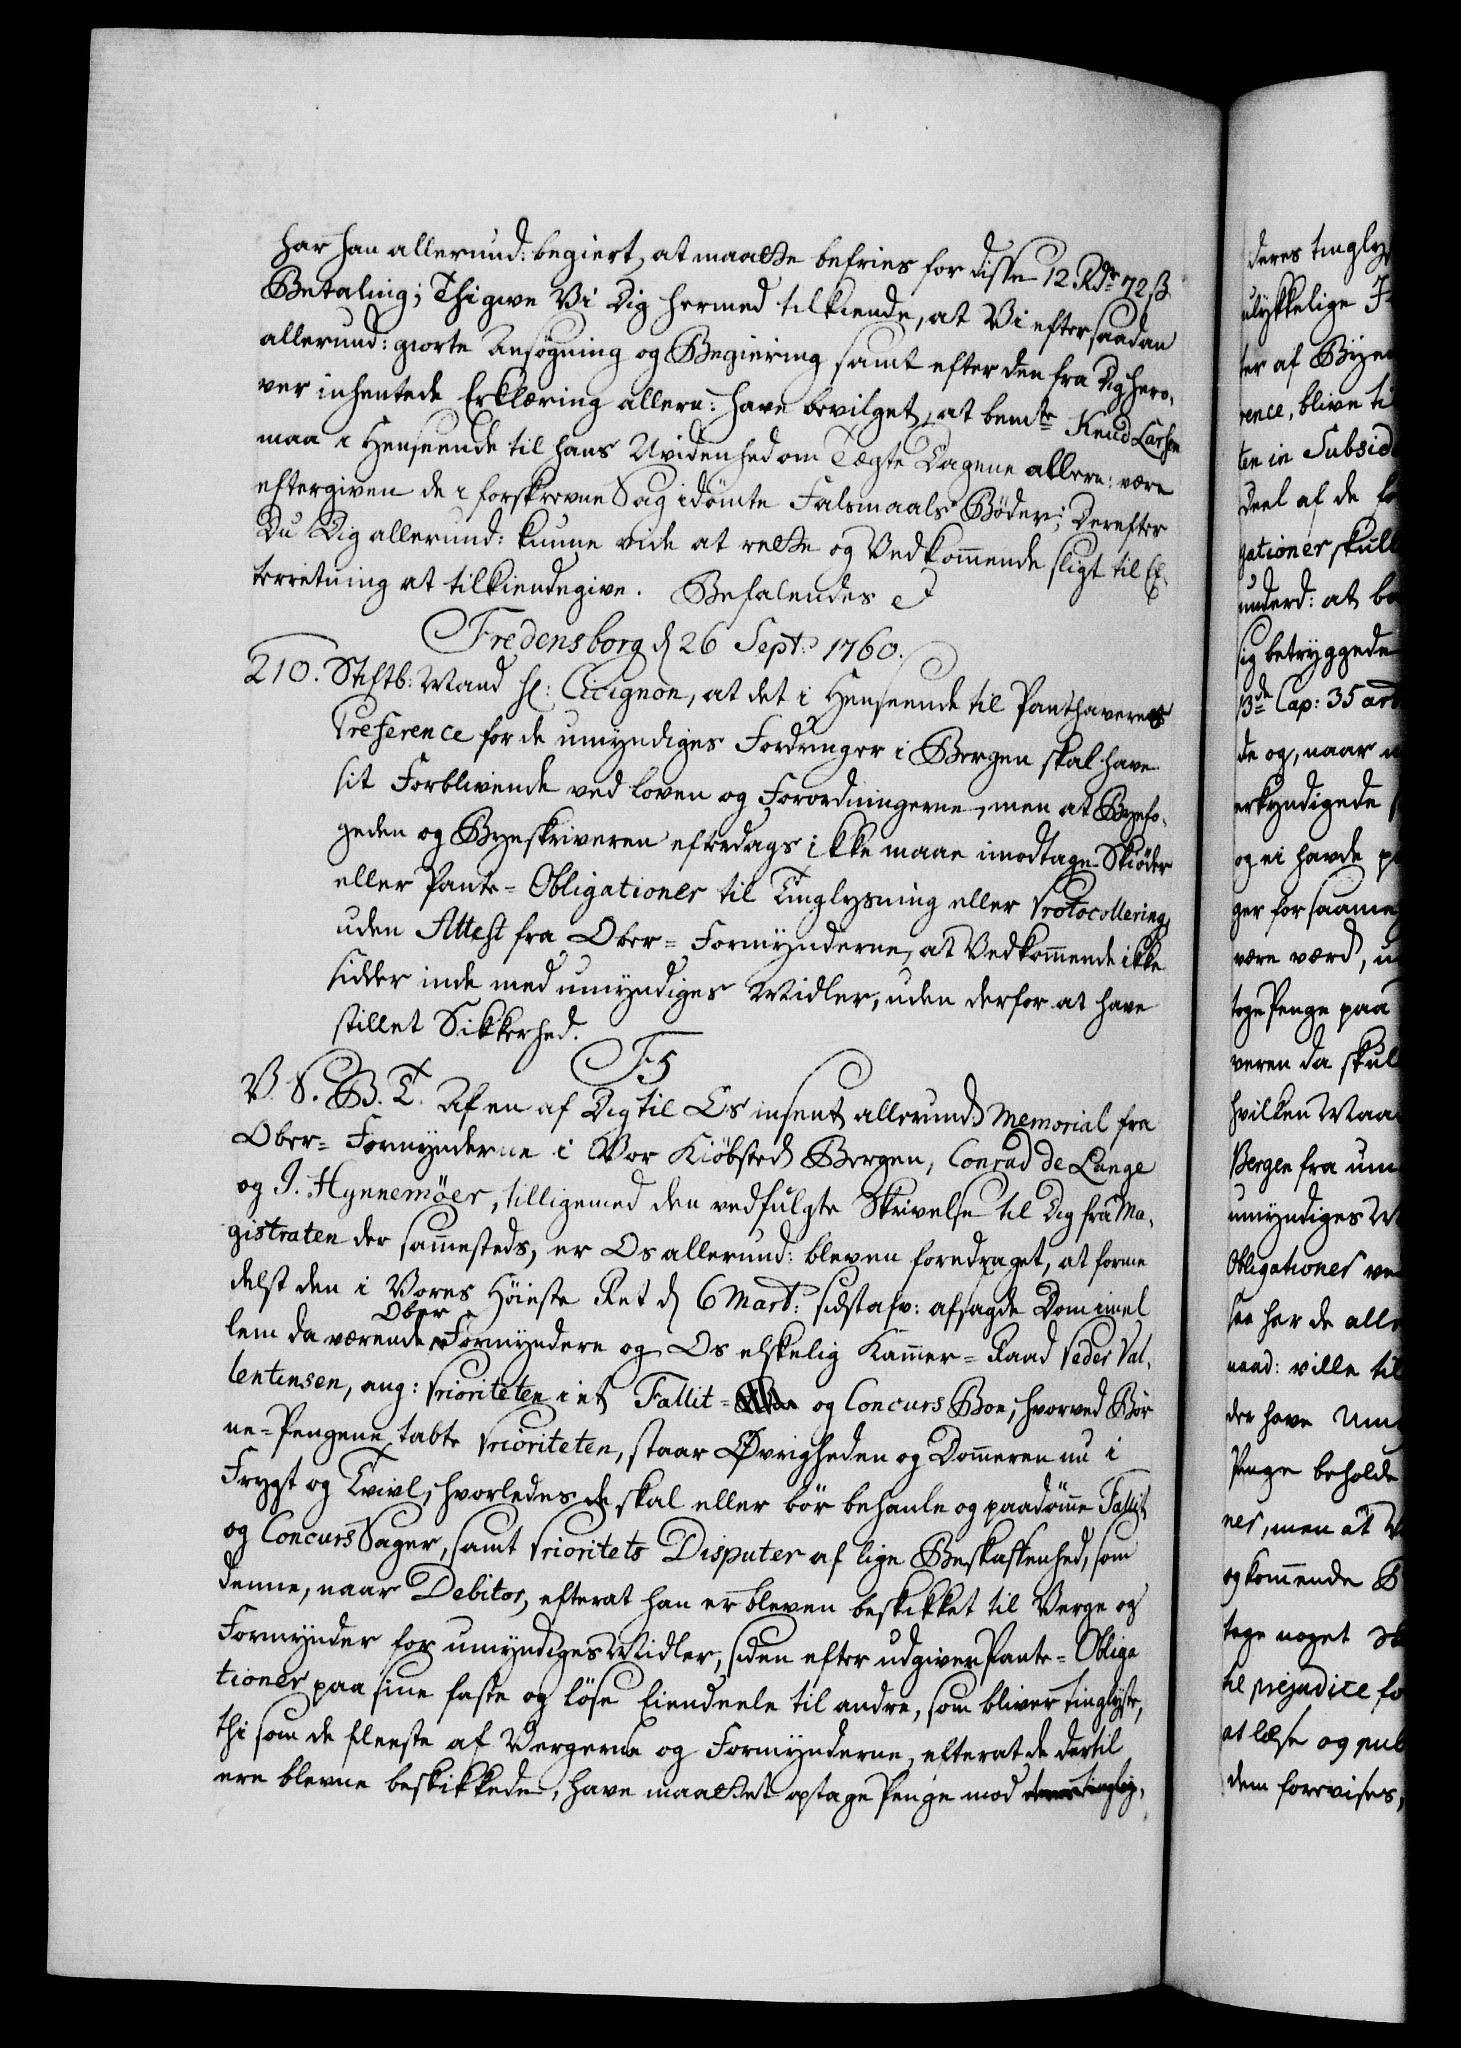 har han allerund: begiert, at maatte befries for disse 12 Rdr 72 ß
Betaling; Thi give Vi Dig hermed tilkiende, at Vi efter saadan
allerund: giorte Ansøgning og Begiering samt efter den fra Dig hero,
ver inhentede Erklæring allern: have bevilget, at bemte Knud Larsen
maa i Henseende til hans Uvidenhed om Tægte Dagene allern: være
eftergiven de i forskrevne Sag idömte Falsmaals Böder; Derefter
Du Dig allerund: kunne vide at rette og Vedkommende sligt til Ef,
terretning at tilkiendegive. Befalendes
Fredensborg d 26 Sept: 1760.
210. Stiftb: Mand H: Cicignon, at det i Henseende til Panthavernes
Preference for de umyndiges Fordringer i Bergen skal have
sit Forblivende ved Loven og Forordningerne, men at Byefo,
geden og Byeskriveren efterdags ikke maae imodtage Skiöder
eller Pante-Obligationer til Tinglysning eller Protocollering
uden Attest fra Ober-Formynderne, at Vedkommende ikke
sidder inde med umyndiges Midler, uden derfor at have
stillet Sikkerhed.
F5
V. S. B. T. Af en af Dig til Os insent allerund Memorial fra
Ober-Formynderne i Vor Kiöbsted Bergen, Conrad de Lange
og J. Hynnemöer, tilligemed den vedfulgte Skrivelse til Dig fra Ma,
gistraten der sammesteds, er Os allerund: bleven foredraget, at forme
delst den i Vores Höieste Ret d 6 Mart: sidstafv: afsagde Dom imel
lem da værende Ober Formyndere og Os elskelig Kammer-Raad Peder Val,
lentinsen, ang: Prioriteten i et Fallit- og Concurs Boe, hvorved Bör
ne-Pengene tabte Prioriteten, staar Øvrigheden og Dommeren nu i
Frygt og Tvivl, hvorledes de skal eller bör behanle og paadömme Fallit
og Concurs Sager, samt Prioritets Disputer af lige Beskaffenhed, som
denne, naar Debitor, efterat han er bleven beskikket til Verge og
Formynder for umyndiges Midler, siden efter udgiver Pante-Obliga
tioner paa sine faste og löse Eiendeele til andre, som bliver tinglyste,
thi som de fleeste af Vergerne og Formynderne, efterat de dertil
ere blevne beskikkede, have maattet optage Penge mod
deres tingly
ulykkelige
ter af Byen
rence, blive ti
ten in Subsid
deel af de
gationer skull
underd: at
sig betryggede
13de Cap: 35 art
de og, naar
erkyndigede
og ei havde
ger for saame
være værd,
toge Penge paa
veren da skul
hvilken Maa
Bergen fra um
umyndiges M
Obligationer ve
saa har de alle
naad: ville til
der have Um
Penge beholde
ner, men at
og kommende B
tage noget
til prejudice fo
at læse og pub
dem forevises,